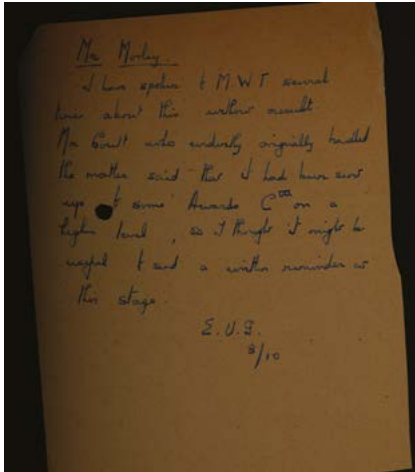 Mr Morley.
I have spoken to M.W.T several
times about this without result.
Mr Gault who evidently originally handled
the matter said that it had been sent
up to some Awards Cttee on a
higher level, so I thought it might be
useful to send a written reminder at
this stage.
E.U.G.
8/10